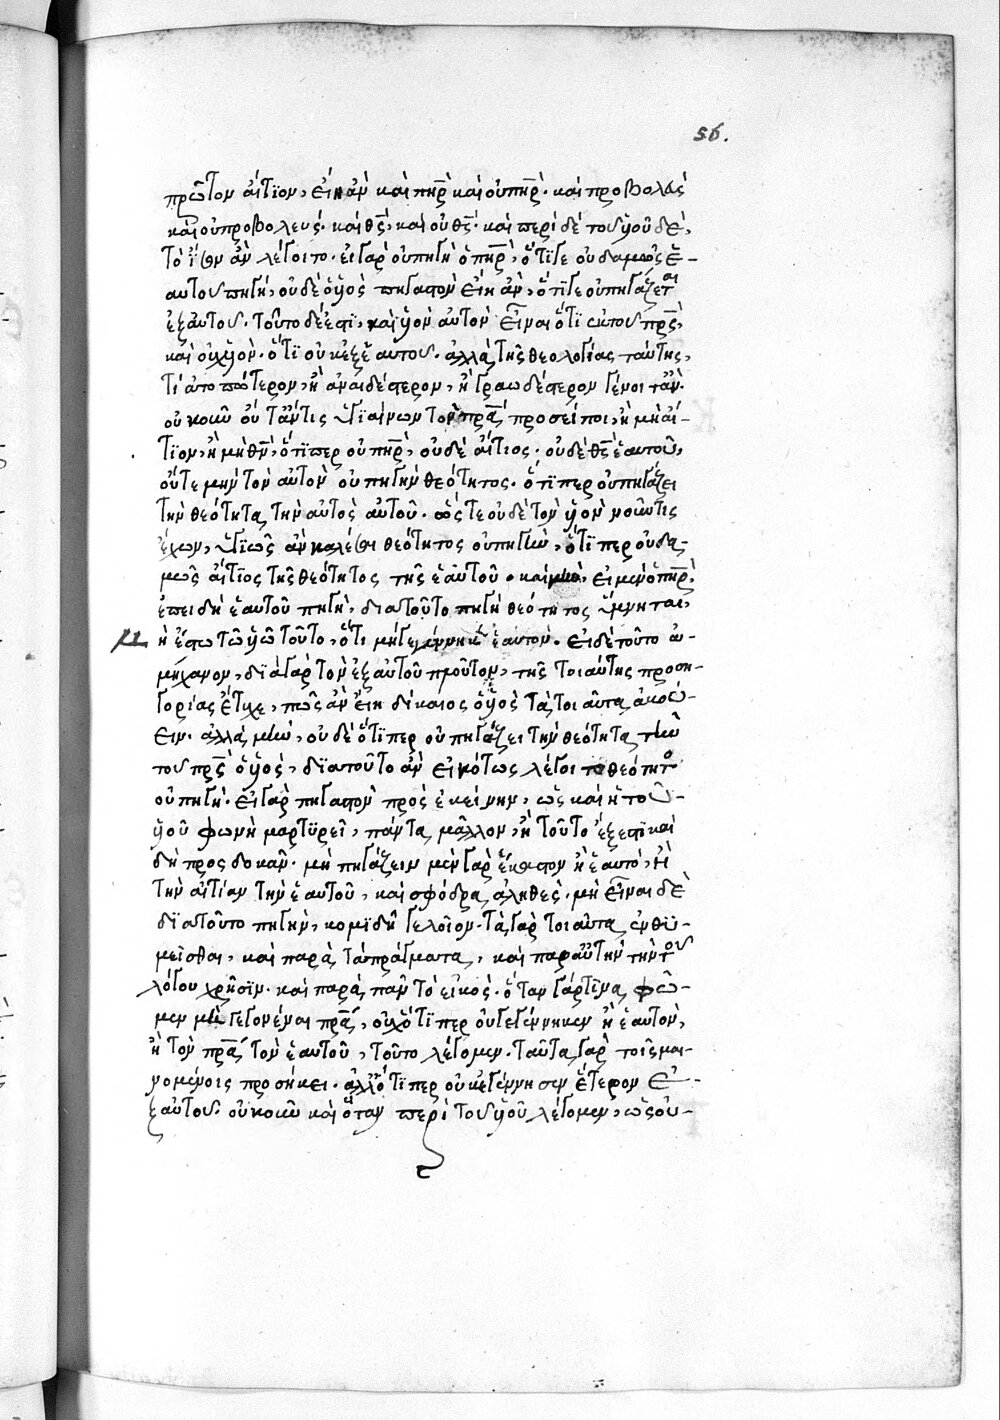 56.
πρῶτον αἴτιον, εἴη ἂν καὶ πηρ̅ καὶ οὐ πηρ̅. καὶ προβολεὺς
καὶ οὐ προβολεύς. καὶ θς̅, καὶ οὐ θς̅. καὶ περὶ δὲ τοῦ ὑοῦ δὲ,
τὸ ἴσον ἂν λέγοιτο. εἰ γὰρ οὐ πηγὴ ὁ πηρ̅, ὅτι γε οὐδαμῶς ἑ-
αυτοῦ πηγή, οὐδὲ ὁ ὑὸς πηγαῖον εἴη ἂν, ὅτι γε οὐ πηγάζεται
ἐξ αὐτοῦ. τοῦτο δέ ἐστι, καὶ ὑὸν αὐτὸν εἶναι ὅτι ἐκ τοῦ πρς̅,
καὶ οὐχ ὑὸν. ὅτι οὐκ ἐξ ἑαυτοῦ. ἀλλὰ τῆς θεολογίας ταύτης,
τί ἀτοπώτερον, ἢ ἀναιδέστερον, ἢ γραωδέστερον γένοιτ' ἄν.
οὐκοῦν οὔτ' ἄν τις ὑγιαίνων τὸν πρα̅ προσείποι, ἢ μὴ αἴ-
τιον, ἢ μὴ θν̅, ὅτι περ οὐ πηρ̅, οὐδὲ αἴτιος. οὐδὲ θς̅ ἑαυτοῦ,
οὔτε μὴν τὸν αὐτὸν οὐ πηγὴν θεότητος. ὅτι περ οὐ πηγάζει
τὴν θεότητα τὴν αὐτὸς αὐτοῦ. ὥστε οὐδὲ τὸν ὑὸν νοῦν τις
ἔχων, ὑγιῶς ἂν καλέσοι θεότητος οὐ πηγὴν, ὅτι περ οὐδα-
μῶς αἴτιος τῆς θεότητος τῆς ἑαυτοῦ. καὶ μὴν, εἰ μὲν ὁ πηρ̅,
ἐπειδὴ ἑαυτοῦ πηγὴ, διὰ τοῦτο πηγὴ θεότητος ὕμνηται,
ἢ ἔστω τῷ ὑῷ τοῦτο, ὅτι μὴ γεγέννηκεν ἑαυτὸν. εἰ δὲ τοῦτο ἀ-
μήχανον, διὰ γὰρ τὸν ἐξ αὐτοῦ προϊτον, τῆς τοιαύτης προση-
γορίας ἔτυχε, πῶς ἂν εἴη δίκαιος ὁ ὑὸς τὰ τοιαῦτα ἀκού-
ειν. ἀλλὰ μὴν, οὐδὲ ὅτι περ οὐ πηγάζει τὴν θεότητα τὴν
τοῦ πρς̅ ὁ ὑὸς, διὰ τοῦτο ἂν εἰκότως λέγοιτο θεότητος
οὐ πηγή. εἰ γὰρ πηγαῖον πρὸς ἐκείνην, ὡς καὶ ἡ τοῦ
ὑοῦ φωνὴ μαρτυρεῖ, πάντα μᾶλλον, ἢ τοῦτο ἔξεστι καὶ
δὴ προσδοκᾶν. μὴ πηγάζειν μὲν γὰρ ἕκαστον ἢ ἑαυτό, ἢ
τὴν αἰτίαν τὴν ἑαυτοῦ, καὶ σφόδρα ἀληθές. μὴ εἶναι δὲ
διὰ τοῦτο πηγὴν, κομιδῆ γελοῖον. τὰ γὰρ τοιαῦτα ἐνθυ-
μεῖσθαι, καὶ παρὰ τὰ πράγματα, καὶ παρ' αὐτὴν τὴν τοῦ
λόγου χρῆσιν. καὶ παρὰ πᾶν τὸ εἰκός. ὅταν γάρ τινα φῶ-
μεν μὴ γεγονέναι πρα̅, οὐχ ὅτι περ οὐ γεγέννηκεν ἢ ἑαυτὸν,
ἢ τὸν πρα̅ τὸν ἑαυτοῦ, τοῦτο λέγομεν. ταῦτα γὰρ τοῖς μαι-
νομένοις προσήκει. ἀλλ' ὅτι περ οὐκ ἐγέννησεν ἕτερον ἐ-
ξ αὐτοῦ. οὐκοῦν καὶ ὅταν περὶ τοῦ ὑοῦ λέγομεν, ὡς οὐ-